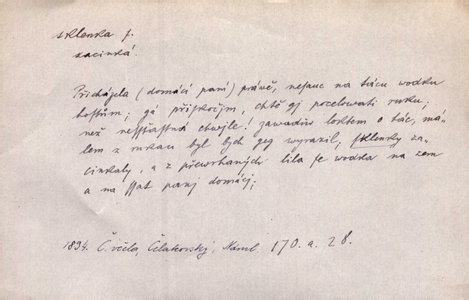 sklenka f.
zacinká.
Přicházela (domácí paní) právě, nesauc na tácu wodku
hostům; gá přiskočjm, chtě gj pocelowati ruku;
než nessťastná chwjle! zawadiw loktem o tác, má-
lem z rukau byl bych geg wyrazil; sklenky za-
cinkaly, a z převrhaných lila se wodka na zem
a na ssat panj domácj;
1834. Č. včela, Čelakovský, 170. a. 28.